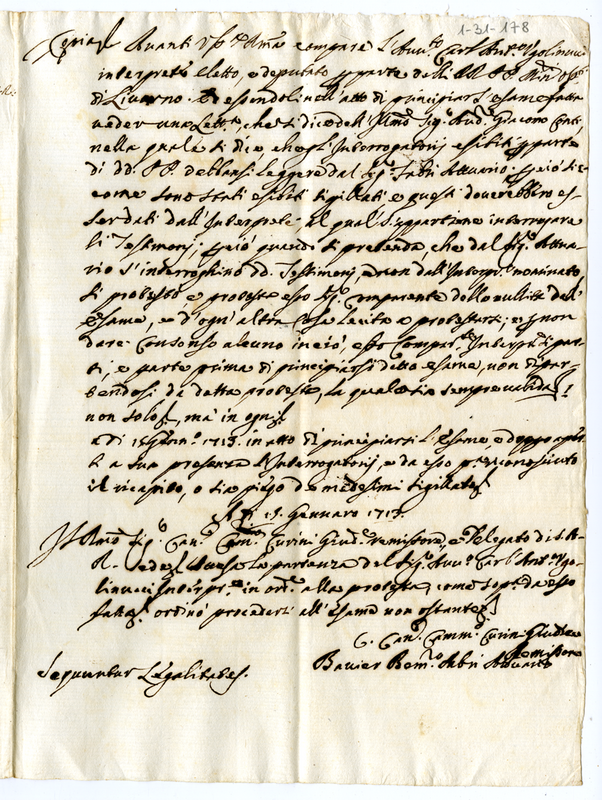 1-31-178
Copia Avanti V.S. Rma compare l'Auu.to Carl'Ant.o Ugolinucci
interprete eletto, e deputato p parte delli RR PP
di Livorno et essendoli nell'atto di principiarsi l'esame fatta
veder una Lett.a, che si dice dell' Illmo Sig.r Aud.re Giacomo Conti
nella quale si dice che gl'Interrogatorij esibiti p parte
di dd. PP. debbansi leggere dal Sig.r Fabri Attuario; p ciò si
come sono stati esibiti sigillati e questi doverebbero es-
ser dati dall'Interprete al qual s'appartiene interrogare
li Testimonj; p ciò quando si pretenda, che dal Sig.r Attua-
rio s'interroghino dd. Testimonj, e non dall'Interp.e nominato
si protestò, e protesta esso Sig.r Comparente della nullità dell'
Esame, e d'ogn'altra cosa lecita e protestarsi, e p non
dare consenso alcuno in ciò, esso Compar.te Interp.e si par-
tì, e partè prima di principiarsi detto esame, non dipar-
tendosi da dette proteste, la quale sia sempre valida
non solo, mà in ogni
a dì 15 Genn.o 1713. in atto di principiarsi l'Esame e doppo aper-
ti a sua presenza l'Interrogatorij, e da esso p.a riconosciuto
il recapito, o sia piego de medesimi sigillato
A dì 15. Gennaro 1713.
Il Rmo Sig.r Can.co Curini Giud.e remissore, e Delegato di S. A.
R. vedut la partenza del Sig.r Auu.to Carl'Ant.o Ugo-
linucci Interpr.e in ord.e alla protesta, come sop.a da esso
fatta, ordinò procedersi all'Esame non ostante
C. Can.co Curini Giudice
Remissore
Fabri Attuario
Sequuntur Legalitates.